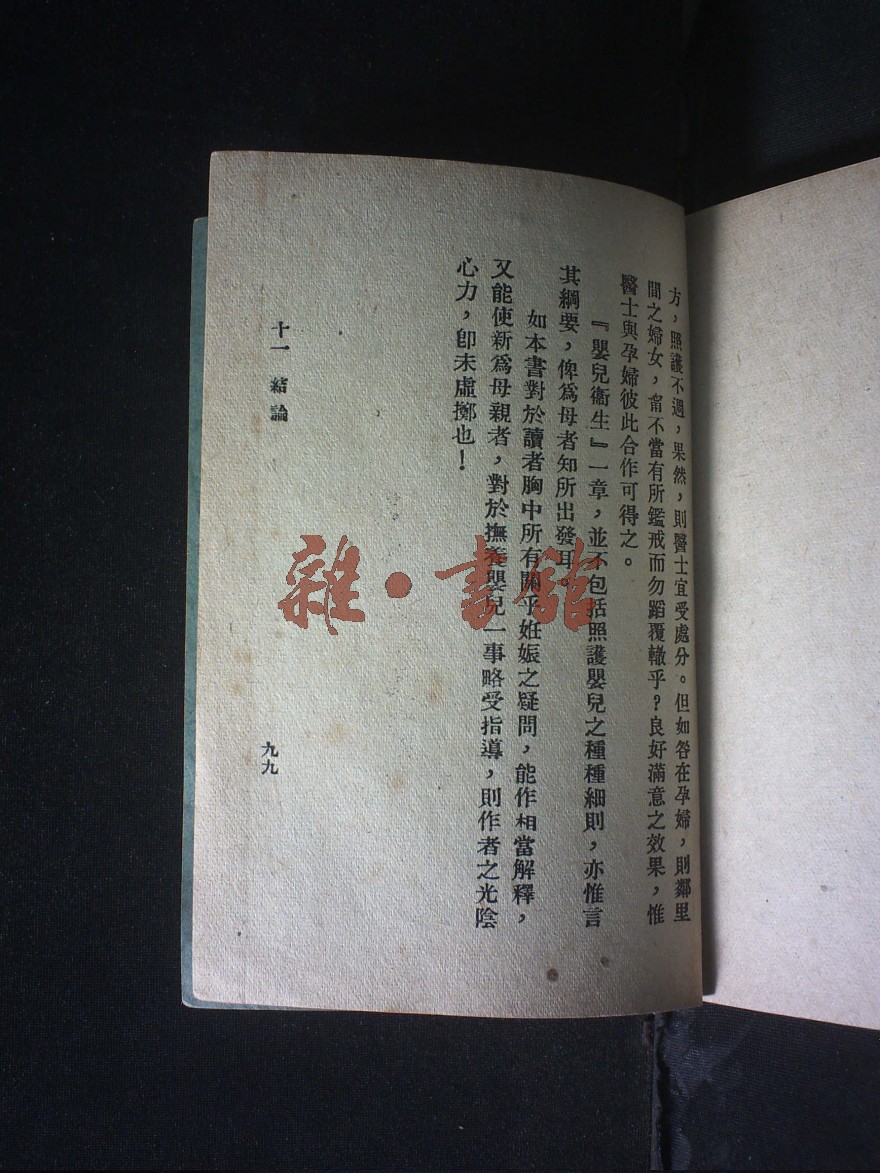 方，照護不週，果然，則醫士宜受處分。但如咎在孕婦，則鄰里
間之婦女，甯不當有所鑑戒而勿蹈覆轍乎？良好滿意之效果，惟
醫士與孕婦彼此合作可得之。
『嬰兒衞生』一章，並不包括照護嬰兒之種種細則，亦惟言
其綱要，俾爲母者知所出發耳。
如本書對於讀者胸中所有關乎姙娠之疑問，能作相當解釋，
又能使新爲母親者，對於撫養嬰兒一事略受指導，則作者之光陰
心力，卽未虛擲也！
十一 結論
九九
雜·書館